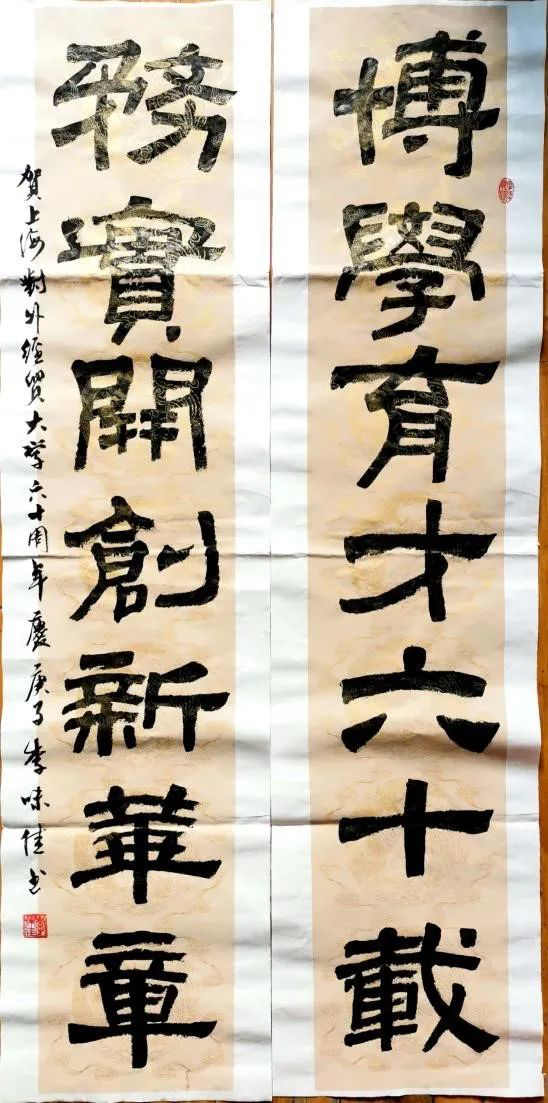 博學育才六十載
務實開創新華章
賀上海對外经貿大学六十周年慶庚子李味佳书